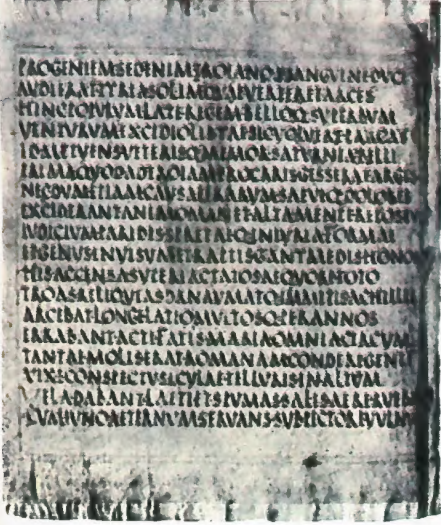 PROGENIEMSEDENIMTROIANOASANGVINEDVCI
AVDIERATTYRIASOLIMQVAEVERTERETARCES
HINCPOPVLVMLATEREGEMBELLOQ·SVPERBVM
VENTVRVMEXCIDIOLIBYAESICVOLVEREPARCAS
IDMETVENSVETERISQ·MEMORSATVRNIABELLI
PRIMAQVODADTROIAMPROCARISGESSERATARGIS
NECDVMETIAMCAVSAEIRARVMSAEVIQ·DOLORES
EXCIDERANTANIMOMANETALTAMENTEREPOSTV
IVDICIVMPARIDISSPRETAEQ·INIVRIAFORMAE
ETGENVSINVISVMETRAPTIGANYMEDISHONO
HISACCENSASVPERIACTATOSAEQVORETOTO
TROASRELIQVIASDANAVMATQ·IMMITISACHILLI
ARCEBATLONGELATIOMVLTOSQ·PERANNOS
ERRABANTACTIFATISMARIAOMNIACIRCVM
TANTAEMOLISERATROMANAMCONDEREGENTE
VIXECONSPECTVSICVLAETELLVRISINALTVM
VELADABANTLAETIETSPVMASSALISAERERVEB
CVMIVNOAETERNVMSERVANSSVBPECTOREVVLN